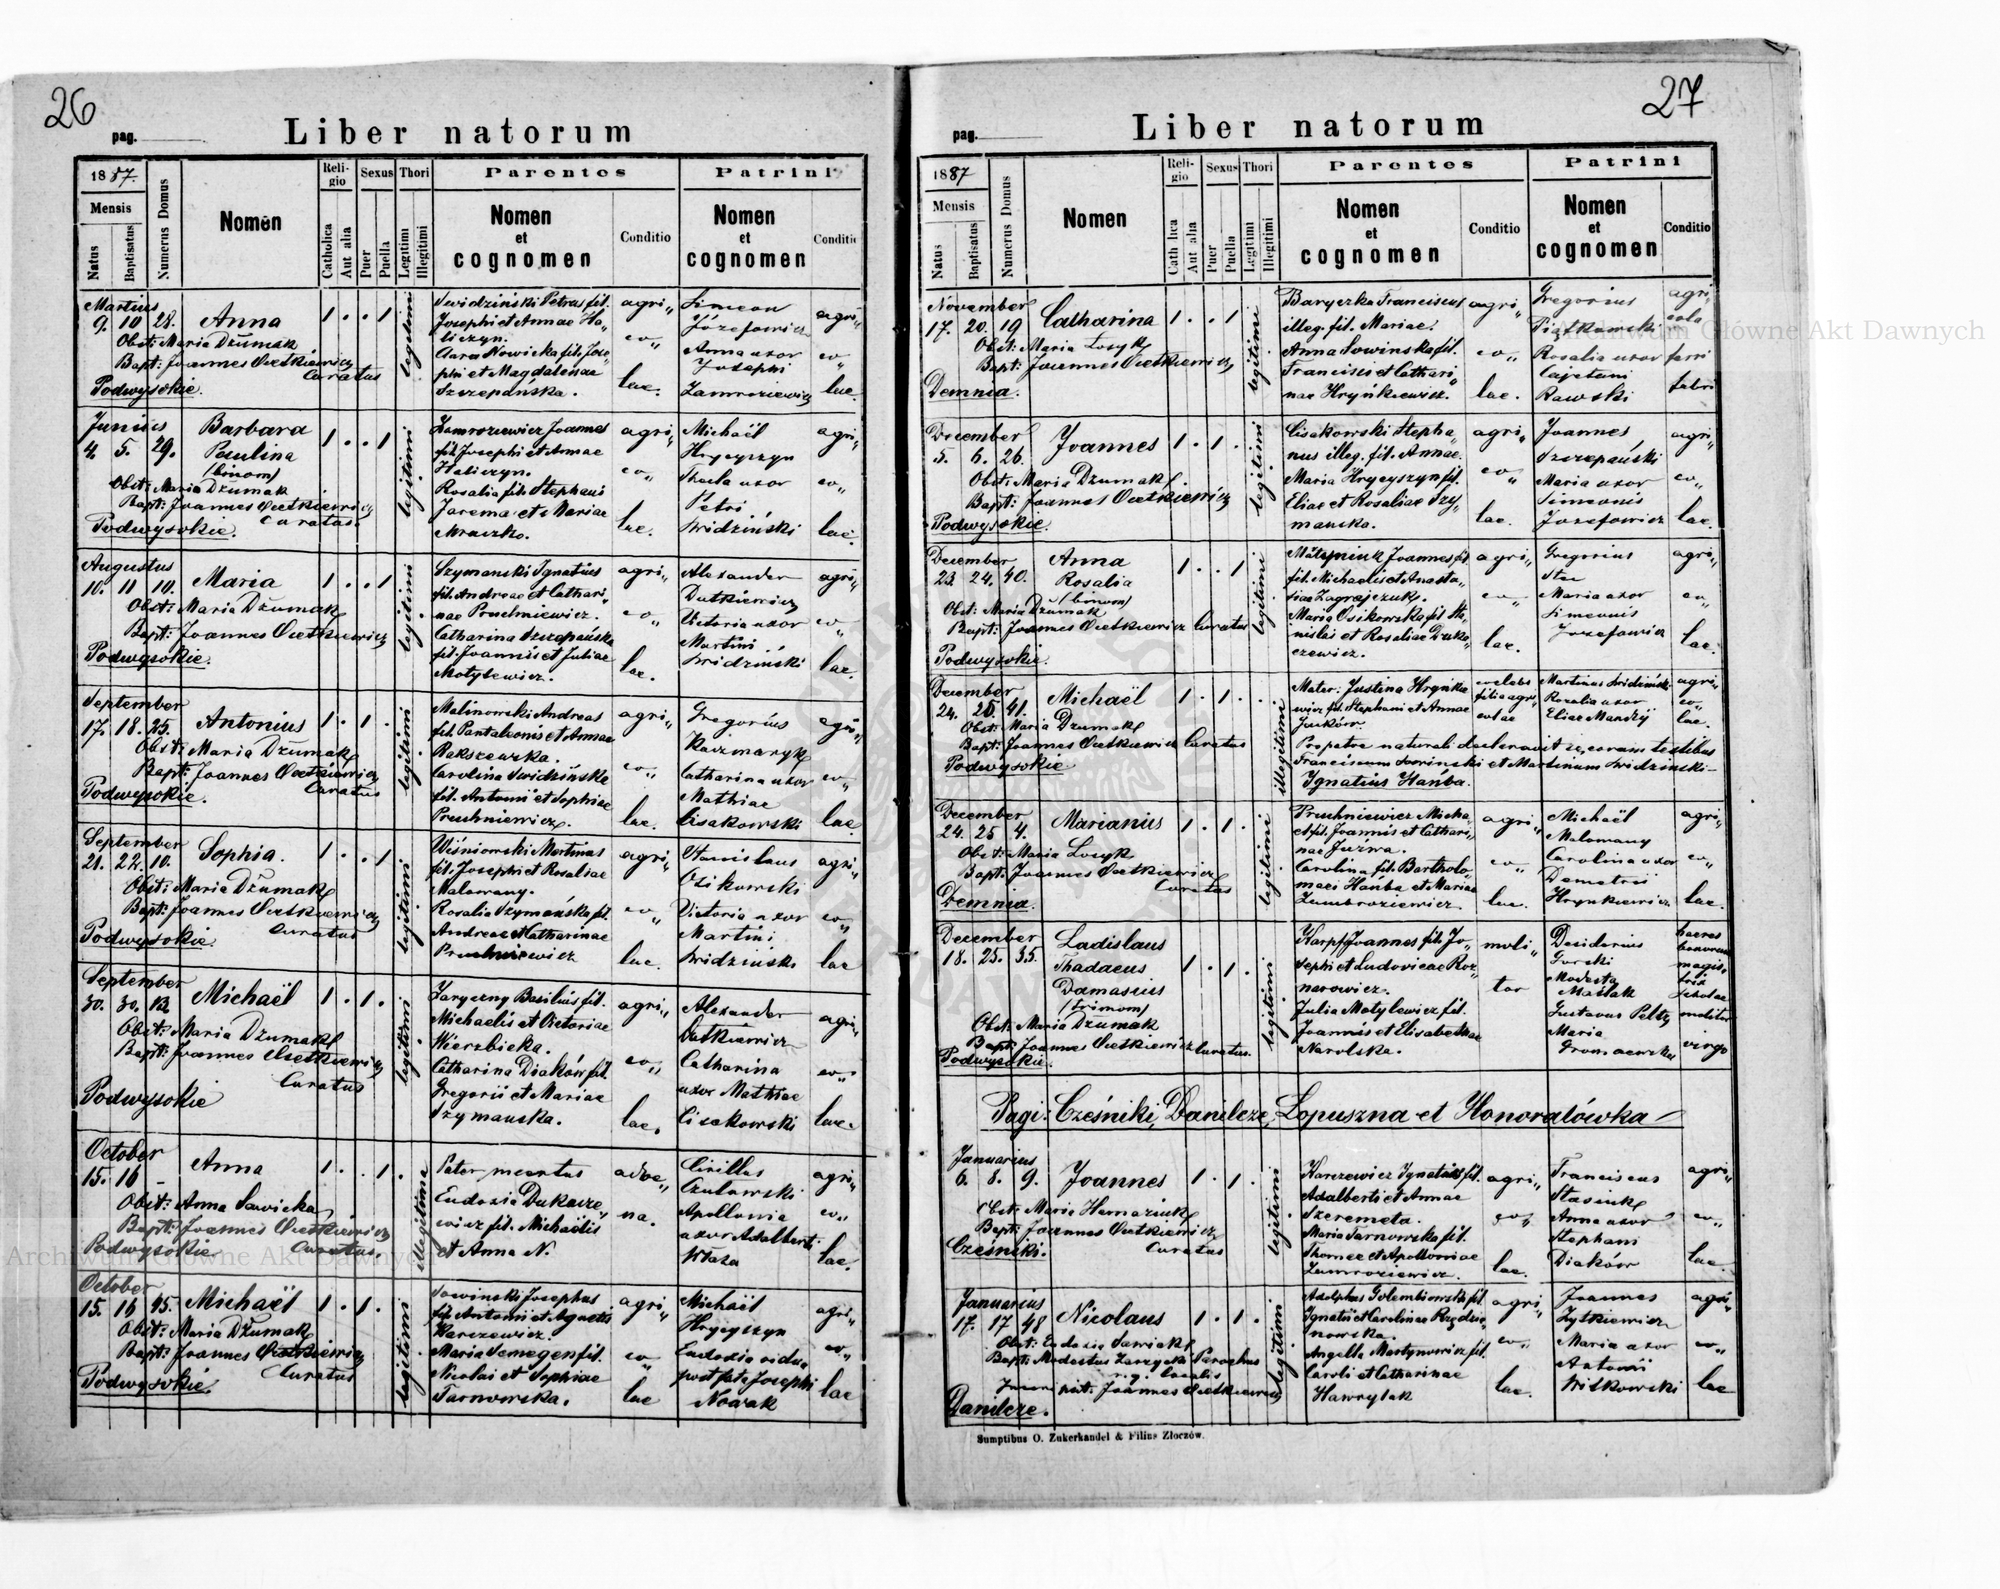 26
pag.
Liber natorum
1887.
Mensis
Natus
Baptisatus
Numerus Domus
Nomen
Religio
Catholica
Aut alia
Sexus
Puer
Puella
Thori
Legitimi
Illegitimi
Parentes
Nomen
et
cognomen
Conditio
Patrini
Nomen
et
cognomen
Conditio
Martius
9. 10 28. Anna 1 . . 1 legitimi
Obst: Maria Dżumak
Bapt: Joannes Cietkiewicz
Curatus
Podwysokie.
Swidziński Petrus fil.
Josephi et Annae Ha-
liczyn.
Clara Nowicka fil. Jose„
phi et Magdalenae
Szczepańska.
agri„
co„
lae.
Simeon
Józefowicz
Anna uxor
Josephi
Zamroziewicz
agri„
co„
lae.
Junius
4. 5. 29. Barbara 1 . . 1 legitimi
Paulina
(binom)
Obst: Maria Dżumak
Bapt: Joannes Cietkiewicz
Curatus.
Podwysokie.
Zamroziewicz Joannes
fil. Josephi et Annae
Haliczyn.
Rosalia fil. Stephani
Jarema et Mariae
Mraczko.
agri„
co„
lae.
Michaël
Hrycyszyn
Thecla uxor
Petri
Swidziński
agri„
co„
lae.
Augustus
10. 11 10. Maria 1 . . 1 legitimi
Obst: Maria Dżumak
Bapt: Joannes Cietkiewicz
Podwysokie.
Szymanski Ignatius
fil. Andreae et Cathari„
nae Pruchniewicz.
Catharina Szczepańska
fil. Joannis et Juliae
Motylewicz.
agri„
co„
lae.
Alexander
Dutkiewicz
Victoria uxor
Martini
Swidziński
agri„
co„
lae.
September
17. 18. 25. Antonius 1 . 1 . legitimi
Obst: Maria Dżumak
Bapt: Joannes Cietkiewicz
Curatus
Podwysokie.
Malinowski Andreas
fil. Pantaleonis et Annae
Carolina Swidzińska
fil. Antonii et Sophiae
Pruchniewicz.
agri„
co„
lae.
Gregorius
Kaczmaryk
Catharina uxor
Mathiae
Cisakowski
agri„
co„
lae
September
21. 22. 10. Sophia. 1 . . 1 legitimi
Obst: Maria Dżumak
Bapt: Joannes Cietkiewicz
Curatus
Podwysokie
Wiśniowski Martinus
fil. Josephi et Rosaliae
Malowany.
Rosalia Szymańska fil.
Andreae et Catharinae
Pruchniewicz
agri„
co„
lae.
Stanislaus
Osikowski
Victoria uxor
Martini
Swidziński
agri„
co„
lae
September
30. 30. 12. Michaël 1 . 1 . legitimi
Obst: Maria Dżumak
Bapt: Joannes Cietkiewicz
Curatus
Podwysokie
Zaryczny Basilius fil.
Michaelis et Victoriae
Wierzbicka.
Catharina Diaków fil.
Gregorii et Mariae
Szymanska.
agri„
co„
lae.
Alexander
Dutkiewicz
Catharina
uxor Mathiae
Cisakowski
agri„
co„
lae.
October
15. 16 Anna 1 . . 1 . illegitime
Obst: Anna Sawicka
Bapt: Joannes Cietkiewicz
Podwysokie Curatus.
Pater incertus
Eudoxia Dukacze„
wicz fil. Michaëlis
et Anna N.
adve„
na.
Cirillus
Czulowski
Apollonia
uxor Adalberti
Właza
agri„
co„
lae.
October
15. 16 45. Michaël 1 . 1 . legitimi
Obst: Maria Dżumak
Bapt: Joannes Cietkiewicz
Curatus
Podwysokie.
Sowinski Josephus
fil. Antonii et Agnetis
Karczewicz.
Maria Semegen fil.
Nicolai et Sophiae
Tarnowska.
agri„
co„
lae
Michaël
Hrycyszyn
Eudoxia vidua
post fata Josephi
Nowak
agri„
co„
lae
27
pag.
Liber natorum
1887
Mensis
Natus
Baptisatus
Numerus Domus
Nomen
Religio
Catholica
Aut alia
Sexus
Puer
Puella
Thori
Legitimi
Illegitimi
Parentes
Nomen
et
cognomen
Conditio
Patrini
Nomen
et
cognomen
Conditio
November
17. 20. 19 Catharina 1 . . 1 legitimi
Obst: Maria Łosyk
Bapt: Joannes Cietkiewicz
Demnia.
Baryczka Franciscus
illeg. fil. Mariae.
Anna Sowinska fil.
Francisci et Cathari„
nae Hryńkiewicz.
agri„
co„
lae.
Gregorius
Piątkowski
Rosalia uxor
Cajetani
Rawski
agri„
cola
ferri
fabri
December
5. 6. 26. Joannes 1 . 1 . legitimi
Obst: Maria Dżumak
Bapt: Joannes Cietkiewicz
Podwysokie.
Cisakowski Stepha„
nus illeg. fil. Annae.
Maria Hrycyszyn fil.
Eliae et Rosaliae Szy„
manska.
agri„
co„
lae.
Joannes
Szczepański
Maria uxor
Simeonis
Jozefowicz
agri„
co„
lae.
December
23. 24. 40. Anna 1 . . 1 legitimi
Rosalia
(binom)
Obst: Maria Dżumak
Bapt: Joannes Cietkiewicz Curatus
Podwysokie.
fil. Michaelis et Anasta„
siae Zagrajczuk.
Maria Osikowska fil. Sta„
nislai et Rosaliae Duka„
czewicz.
agri„
co„
lae.
Gregorius
Stec
Maria uxor
Simeonis
Jozefowicz
agri„
co„
lae.
December
24. 25. 41. Michaël 1 . 1 . illegitimi
Obst: Maria Dżumak
Bapt: Joannes Cietkiewicz Curatus
Podwysokie
Mater: Justina Hryńkie
wicz fil. Stephani et Annae
caelebs
filia agri„
colae
Martinus Swidziński
Rosalia uxor
Eliae Mandzij
agri„
co„
lae.
Pro patre naturali declaravit se, coram testibus
Franciscum Sowinski et Martinum Swidzinski –
Ignatius Hańba.
December
24. 25 4. Marianus 1 . 1 . legitimi
Obst: Maria Łosyk
Bapt: Joannes Cietkiewicz
Curatus
Demnia.
Pruchniewicz Micha„
el fil. Joannis et Cathari„
nae Juzwa.
Carolina fil. Bartholo„
maei Hańba et Mariae
Zambroziewicz.
agri„
co„
lae.
Michaël
Malowany
Carolina uxor
Demetrii
Hryńkiewicz
agri„
co„
lae.
December
18. 25. 35. Ladislaus 1 . 1 . legitimi
Thadaeus
Damasius
(trinom)
Obst: Maria Dżumak
Bapt: Joannes Cietkiewicz Curatus.
Podwysokie.
Karpf Joannes fil. Jo„
sephi et Ludovicae Roz„
narowicz.
Julia Motylewicz fil.
Joannis et Elisabethae
Narolska.
moli„
tor
Desiderius
Gorski
Modesta
Maślak
Gustavus Peltz
Maria
haeres
bonorum
magis„
trix
scholae
molitor
virgo
Pagi: Cześniki, Danilcze, Łopuszna et Honoratówka
Januarius
6. 8. 9. Joannes 1 . 1 . legitimi
Obst: Maria Harnaziuk
Bapt: Joannes Cietkiewicz
Curatus
Cześniki.
Karczewicz Ignatius fil.
Adalberti et Annae
Szeremeta.
Maria Tarnowska fil.
Thomae et Apolloniae
Zamroziewicz.
agri„
co„
lae.
Franciscus
Stasiuk
Anna uxor
Stephani
Diaków
agri„
co„
lae.
Januarius
17. 17 48 Nicolaus 1 . 1 . legitimi
Obst: Eudoxia Sawiak
Bapt: Modestus Zarzycki Parochus
r. g. localis
Inscripsit: Joannes Cietkiewicz
Danilcze.
Adolphus Golembiowski fil.
Ignatii et Carolinae Rządzia„
nowska.
Angella Martynowicz fil.
Caroli et Catharinae
Hawrylak
agri„
co„
lae.
Joannes
Zytkiewicz
Maria uxor
Antonii
Witkowski
agri„
co„
lae
Sumptibus O. Zukerkandel & Filius Złoczów.
Archiwum Główne Akt Dawnych
Archiwum Główne Akt Dawnych